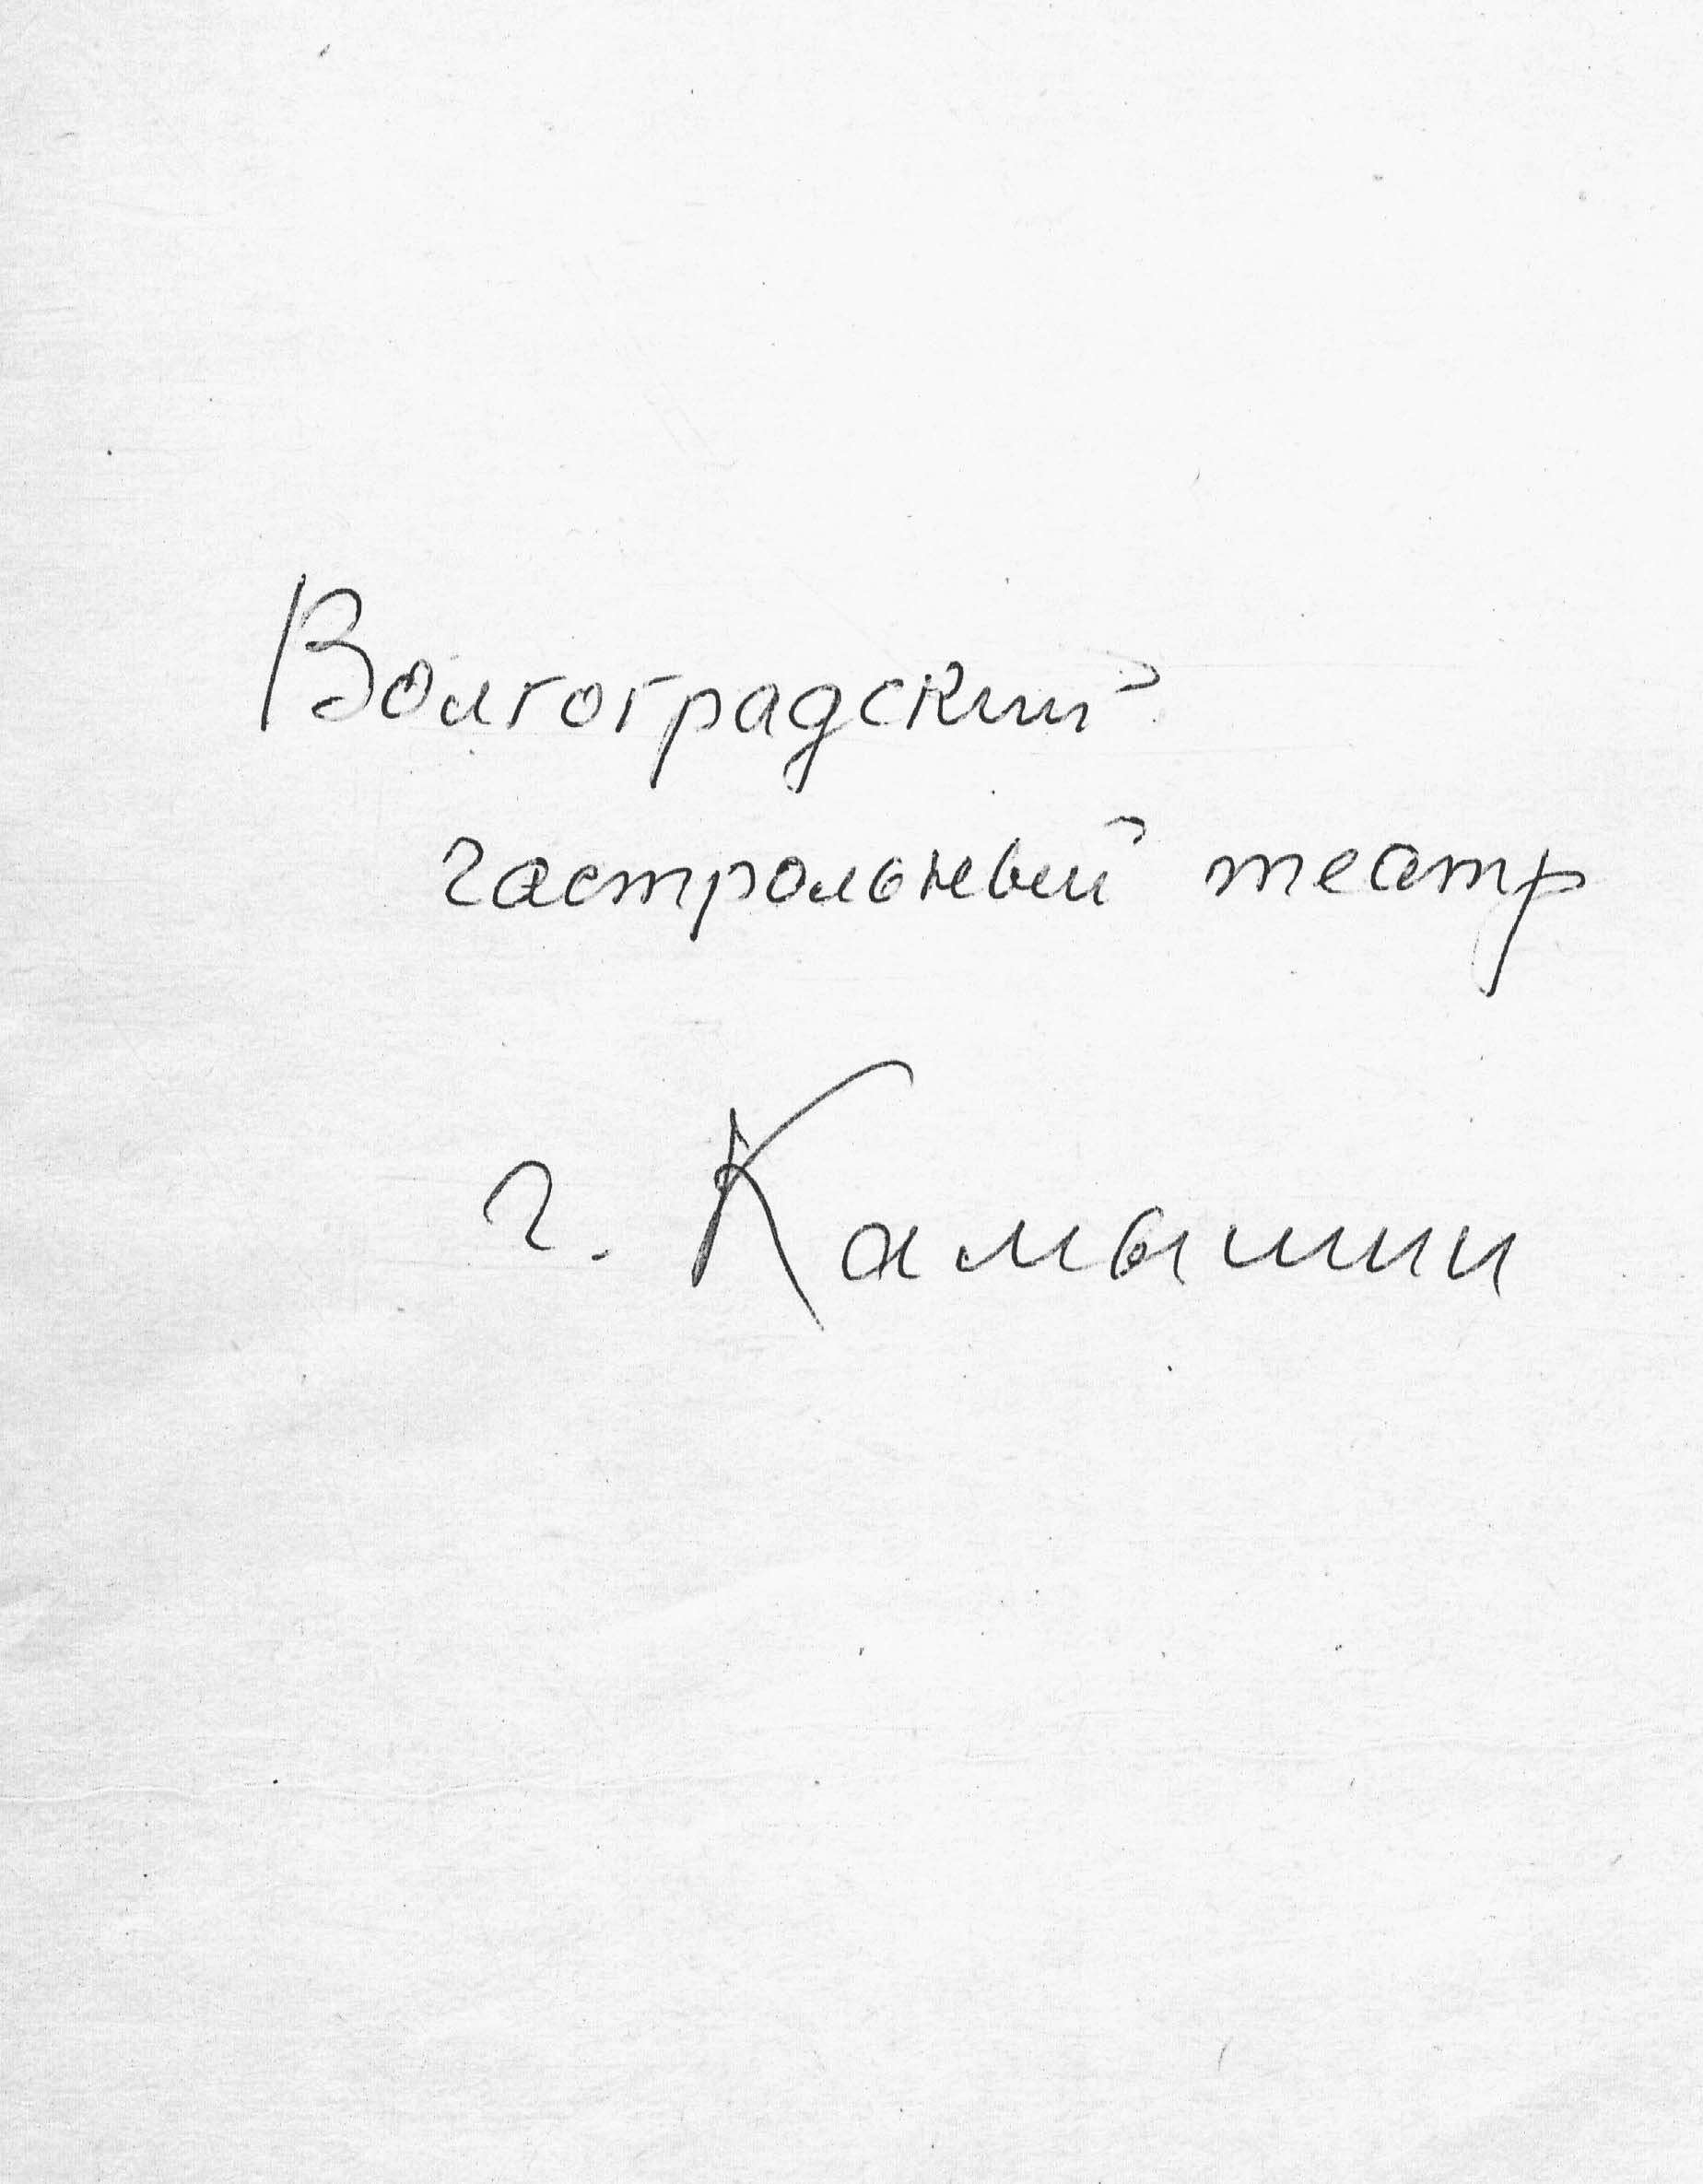 Волгоградский
гастрольный театр
г. Камышин